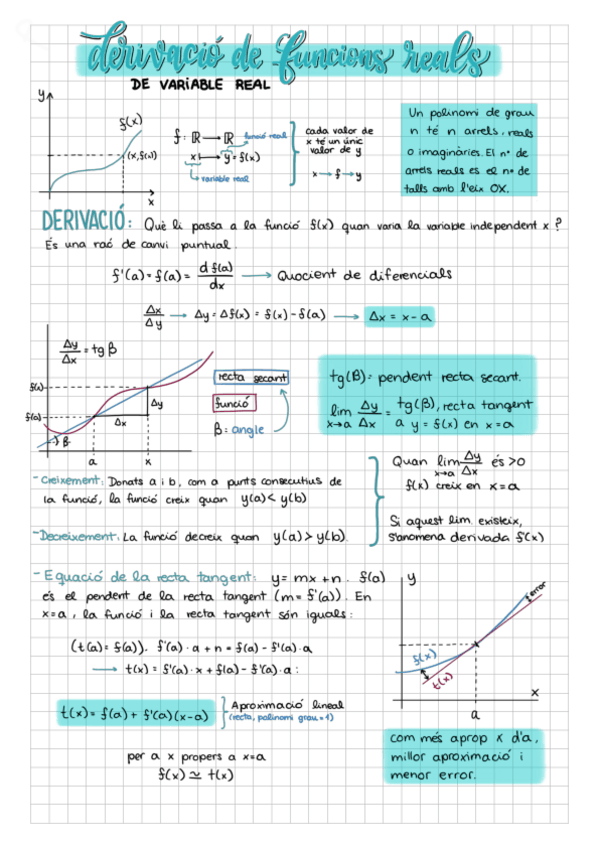 derivació de funcions reals
DE VARIABLE REAL
y
f(x)
(x, f(x))
x
f: ℝ → ℝ funció real
x ↦ y = f(x)
variable real
cada valor de
x té un únic
valor de y
x → f → y
Un polinomi de grau
n té n arrels, reals
o imaginàries. El nº de
arrels reals es el nº de
talls amb l'eix OX.
DERIVACIÓ: Què li passa a la funció f(x) quan varia la variable independent x ?
És una raó de canvi puntual.
f'(a) = f(a) = d f(a) / dx → Quocient de diferencials
Δx/Δy → Δy = Δf(x) = f(x) - f(a) → Δx = x - a
Δy/Δx = tg β
f(x)
f(a)
Δy
Δx
β
a
x
recta secant
funció
β = angle
tg(β) = pendent recta secant.
lim x→a Δy/Δx = tg(β), recta tangent
a y = f(x) en x = a
- Creixement: Donats a i b, com a punts consecutius de
la funció, la funció creix quan y(a) < y(b)
- Decreixement: La funció decreix quan y(a) > y(b).
Quan lim x→a Δy/Δx és >0
f(x) creix en x = a
Si aquest lim. existeix,
s'anomena derivada f(x)
- Equació de la recta tangent: y = mx + n . f(a)
és el pendent de la recta tangent (m = f'(a)). En
x = a, la funció i la recta tangent són iguals:
(t(a) = f(a)). f'(a) · a + n = f(a) - f'(a) · a
→ t(x) = f'(a) · x + f(a) - f'(a) · a :
t(x) = f(a) + f'(a)(x-a)
Aproximació lineal
(recta, polinomi grau = 1)
per a x propers a x = a
f(x) ≃ t(x)
y
error
f(x)
t(x)
x
a
com més aprop x d'a,
millor aproximació i
menor error.